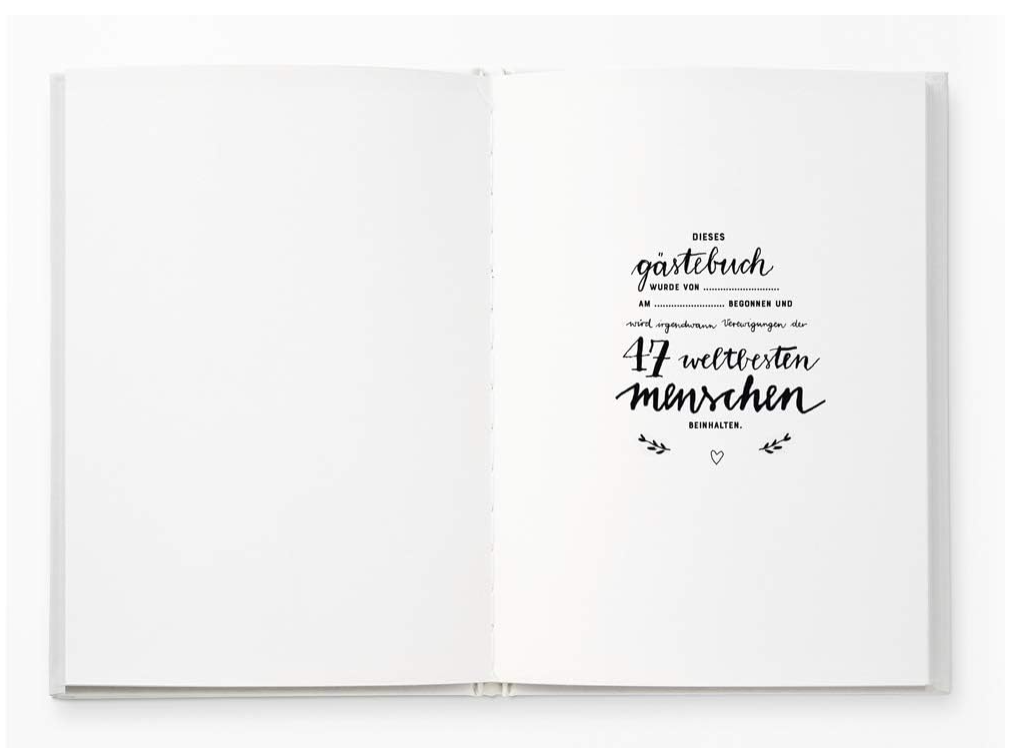 DIESES
gästebuch
WURDE VON ............................
AM .......................... BEGONNEN UND
wird irgendwann Verewigungen der
47 weltbesten
menschen
BEINHALTEN.